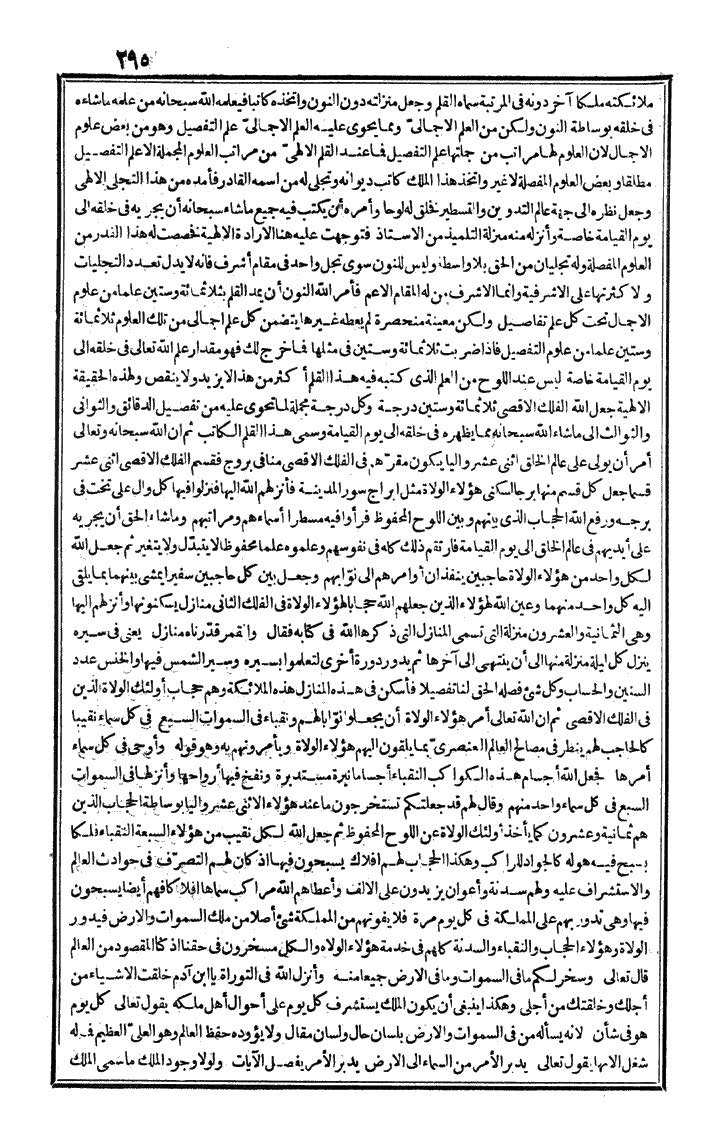 ٢٩٥
ملائكته ملكا آخر دونه فى المرتبة سماه القلم وجعل منزلته دون النون واتخذه كاتبا فيعلمه الله سبحانه من علمه ماشاءه
فى خلقه بوساطة النون ولكن من العلم الاجمالى ومما يحوى عليه العلم الاجمالى علم التفصيل وهو من بعض علوم
الاجمال لان العلوم لها مراتب من جملتها علم التفصيل فما عند القلم الالهى من مراتب العلوم المجملة الاعلم التفصيل
مطلقا وبعض العلوم المفصلة لاغير واتخذ هذا الملك كاتب ديوانه وتجلى له من اسمه القادر فأمده من هذا التجلى الالهى
وجعل نظره الى جهة عالم التدوين والتسطير فخلق له لوحا وأمره أن يكتب فيه جميع ماشاء سبحانه أن يجريه فى خلقه الى
يوم القيامة خاصة وأنزله منه منزلة التلميذ من الاستاذ فتوجهت عليه هنا الارادة الالهية فخصصت له هذا القدر من
العلوم المفصلة وله تجليان من الحق بلا واسطة وليس للنون سوى تجل واحد فى مقام أشرف فانه لا يدل تعدد التجليات
ولا كثرتها على الاشرفية وانما الاشرف من له المقام الاعم فأمر الله النون أن يمد القلم بثلاثمائة وستين علما من علوم
الاجمال تحت كل علم تفاصيل ولكن معينة منحصرة لم يعطه غيرها يتضمن كل علم اجمالى من تلك العلوم ثلاثمائة
وستين علما من علوم التفصيل فاذا ضربت ثلاثمائة وستين فى مثلها فما خرج لك فهو مقدار علم الله تعالى فى خلقه الى
يوم القيامة خاصة ليس عند اللوح من العلم الذى كتبه فيه هذا القلم أكثر من هذا لا يزيد ولا ينقص ولهذه الحقيقة
الالهية جعل الله الفلك الاقصى ثلاثمائة وستين درجة وكل درجة مجملة لما تحوى عليه من تفصيل الدقائق والثوانى
والثوالث الى ماشاء الله سبحانه مما يظهره فى خلقه الى يوم القيامة وسمى هذا القلم الكاتب ثم ان الله سبحانه وتعالى
أمر أن يولى على عالم الخلق اثنى عشر واليا يكون مقرهم فى الفلك الاقصى منا فى بروج فقسم الفلك الاقصى اثنى عشر
قسما جعل كل قسم منها برجا لسكنى هؤلاء الولاة مثل ابراج سور المدينة فأنزلهم الله اليها فنزلوا فيها كل وال على تخت فى
برجه ورفع الله الحجاب الذى بينهم وبين اللوح المحفوظ فرأوا فيه مسطرا أسماءهم ومراتبهم وماشاء الحق أن يجريه
على أيديهم فى عالم الخلق الى يوم القيامة فارتقم ذلك كله فى نفوسهم وعلموه علما محفوظا لا يتبدل ولا يتغير ثم جعل الله
لكل واحد من هؤلاء الولاة حاجبين ينفذان أوامرهم الى نوابهم وجعل بين كل حاجبين سفيرا يمشى بينهما بما يلقى
اليه كل واحد منهما وعين الله لهؤلاء الذين جعلهم الله حجابا لهؤلاء الولاة فى الفلك الثانى منازل يسكنونها وأنزلهم اليها
وهى الثمانية والعشرون منزلة التى تسمى المنازل التى ذكرها الله فى كتابه فقال والقمر قدرناه منازل يعنى فى سيره
ينزل كل ليلة منزلة منها الى أن ينتهى الى آخرها ثم يدور دورة أخرى لتعلموا بسيره وسير الشمس فيها والخنس عدد
السنين والحساب وكل شئ فصله الحق لنا تفصيلا فأسكن فى هذه المنازل هذه الملائكة وهم حجاب أولئك الولاة الذين
فى الفلك الاقصى ثم ان الله تعالى أمر هؤلاء الولاة أن يجعلوا نوابا لهم ونقباء فى السموات السبع فى كل سماء نقيبا
كالحاجب لهم ينظر فى مصالح العالم العنصرى بما يلقون اليهم هؤلاء الولاة ويأمرونهم به وهو قوله وأوحى فى كل سماء
أمرها فجعل الله أجسام هذه الكواكب النقباء أجساما نيرة مستديرة ونفخ فيها أرواحها وأنزلها فى السموات
السبع فى كل سماء واحد منهم وقال لهم قد جعلتكم تستخرجون ما عند هؤلاء الاثنى عشر واليا بوساطة الحجاب الذين
هم ثمانية وعشرون كما يأخذ أولئك الولاة عن اللوح المحفوظ ثم جعل الله لكل نقيب من هؤلاء السبعة النقباء فلكا
يسبح فيه هو له كالجواد للراكب وهكذا الحجاب لهم افلاك يسبحون فيها اذ كان لهم التصرف فى حوادث العالم
والاستشراف عليه ولهم سدنة وأعوان يزيدون على الالف وأعطاهم الله مراكب سماها افلاكا فهم أيضا يسبحون
فيها وهى تدور بهم على المملكة فى كل يوم مرة فلا يفوتهم من المملكة شئ أصلا من ملك السموات والارض فيدور
الولاة وهؤلاء الحجاب والنقباء والسدنة كلهم فى خدمة هؤلاء الولاه والكل مسخرون فى حقنا اذ كنا المقصود من العالم
قال تعالى وسخر لكم مافى السموات ومافى الارض جميعا منه وأنزل الله فى التوراة يا ابن آدم خلقت الاشياء من
أجلك وخلقتك من أجلى وهكذا ينبغى أن يكون الملك يستشرف كل يوم على أحوال أهل ملكه يقول تعالى كل يوم
هو فى شأن لانه يسأله من فى السموات والارض بلسان حال ولسان مقال ولا يؤوده حفظ العالم وهو العلى العظيم فماله
شغل الابها يقول تعالى يدبر الأمر من السماء الى الارض يدبر الأمر يفصل الآيات ولولا وجود الملك ماسمى الملك